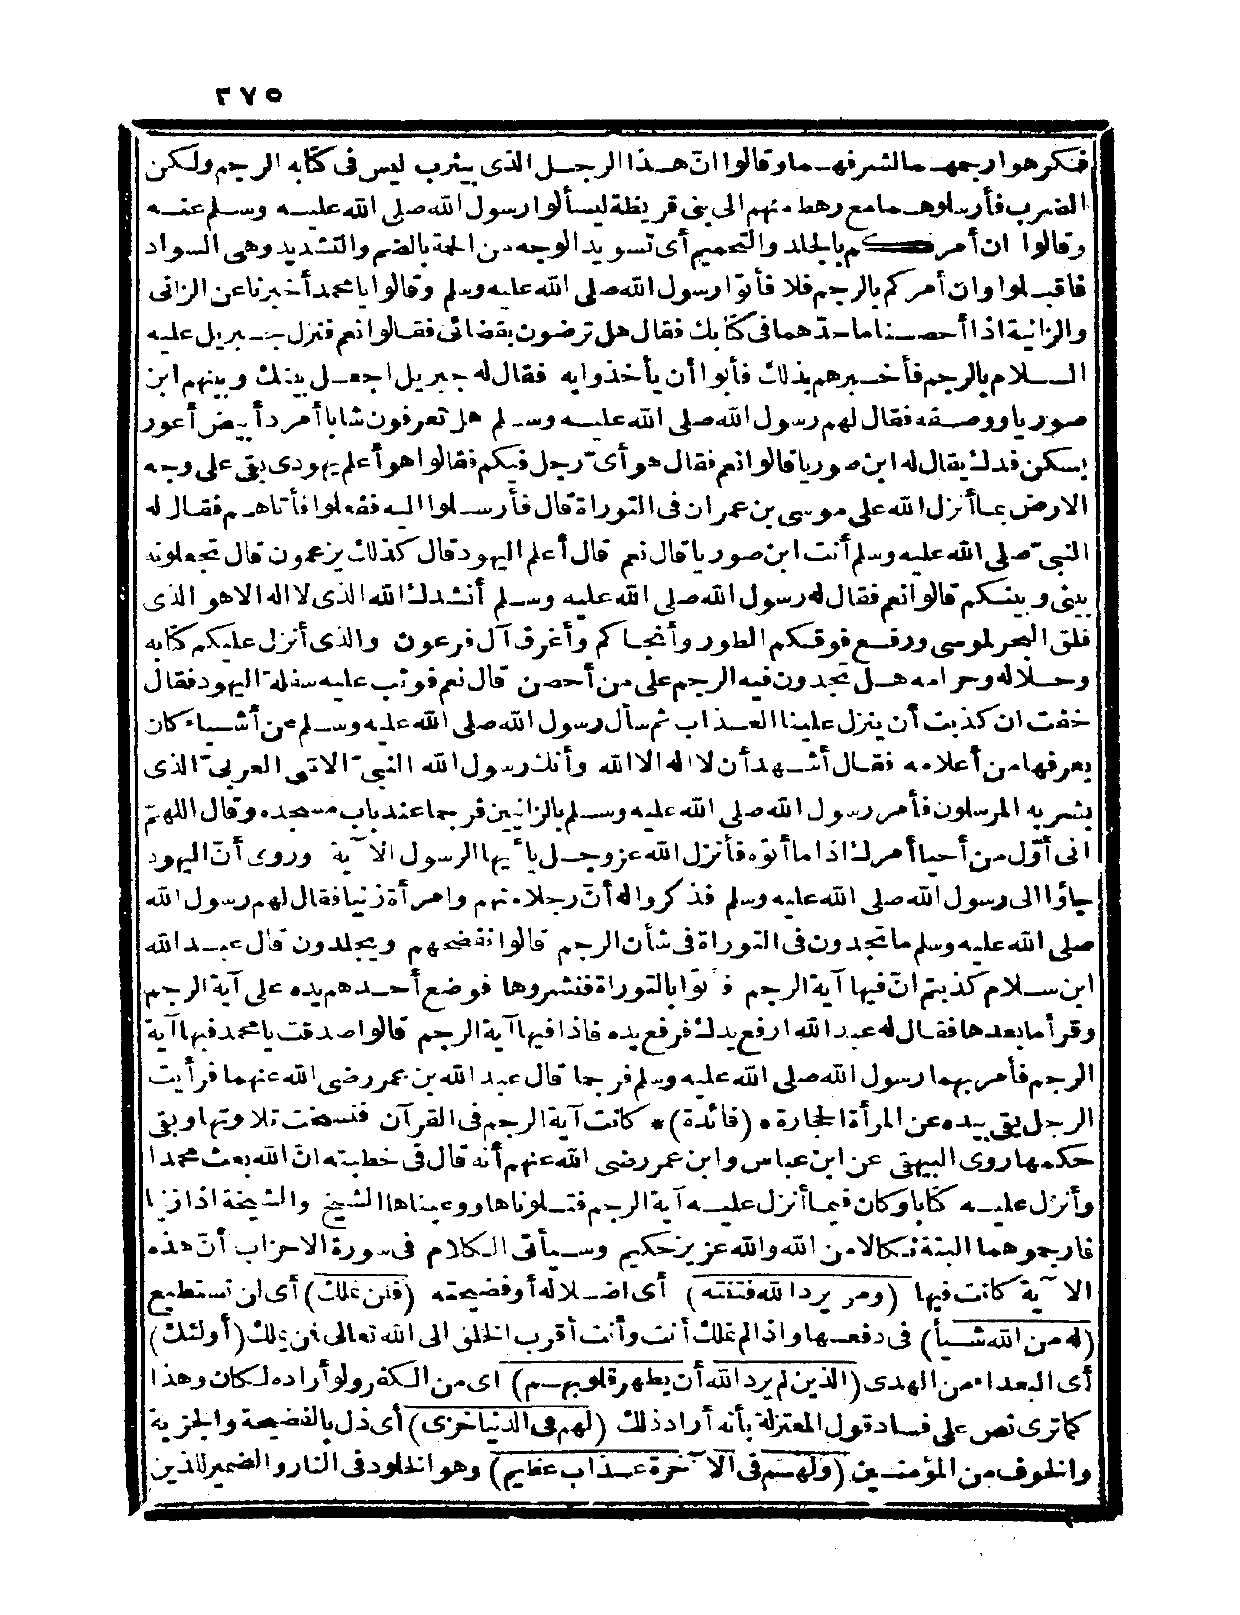 ٣٧٥
فكرهوا رجمهما لشرفهما وقالوا انّ هذا الرجل الذى بيثرب ليس فى كتابه الرجم ولكن
الضرب فأرسلوهما مع رهط منهم الى بنى قريظة ليسألوا رسول الله صلى الله عليه وسلم عنه
وقالوا ان أمركم بالجلد والتحميم أى تسويد الوجه من الحمة بالضم والتشديد وهى السواد
فاقبلوا وان أمركم بالرجم فلا فأتوا رسول الله صلى الله عليه وسلم وقالوا يا محمد أخبرنا عن الزانى
والزانية اذا أحصنا ما حدّهما فى كتابك فقال هل ترضون بقضائى فقالوا نعم فنزل جبريل عليه
السلام بالرجم فأخبرهم بذلك فأبوا أن يأخذوا به فقال له جبريل اجعل بينك وبينهم ابن
صوريا ووصفه فقال لهم رسول الله صلى الله عليه وسلم هل تعرفون شابا أمرد أبيض أعور
يسكن فدك يقال له ابن صوريا قالوا نعم فقال هو أىّ رجل فيكم فقالوا هو أعلم يهودى بقى على وجه
الارض بما أنزل الله على موسى بن عمران فى التوراة قال فأرسلوا اليه ففعلوا فأتاهم فقال له
النبىّ صلى الله عليه وسلم أنت ابن صوريا قال نعم قال أعلم اليهود قال كذلك يزعمون قال تجعلونه
بينى وبينكم قالوا نعم فقال له رسول الله صلى الله عليه وسلم أنشدك الله الذى لا اله الا هو الذى
فلق البحر لموسى ورفع فوقكم الطور وأنجاكم وأغرق آل فرعون والذى أنزل عليكم كتابه
وحلاله وحرامه هل تجدون فيه الرجم على من أحصن قال نعم فوثب عليه سفلة اليهود فقال
خفت ان كذبت أن ينزل علينا العذاب ثم سأل رسول الله صلى الله عليه وسلم عن أشياء كان
يعرفها من أعلامه فقال أشهد أن لا اله الا الله وأنك رسول الله النبىّ الامّى العربىّ الذى
بشر به المرسلون فأمر رسول الله صلى الله عليه وسلم بالزانيين فرجما عند باب مسجده وقال اللهمّ
انى أوّل من أحيا أمرك اذا ماأتوه فأنزل الله عز وجل يا أيها الرسول الآية وروى أنّ اليهود
جاؤا الى رسول الله صلى الله عليه وسلم فذكروا له أنّ رجلا منهم وامرأة زنيا فقال لهم رسول الله
صلى الله عليه وسلم ما تجدون فى التوراة فى شأن الرجم قالوا نفضحهم ويجلدون قال عبد الله
ابن سلام كذبتم انّ فيها آية الرجم فأتوا بالتوراة فنشروها فوضع أحدهم يده على آية الرجم
وقرأ ما بعدها فقال له عبد الله ارفع يدك فرفع يده فاذا فيها آية الرجم قالوا صدقت يا محمد فيها آية
الرجم فأمر بهما رسول الله صلى الله عليه وسلم فرجما قال عبد الله بن عمر رضى الله عنهما فرأيت
الرجل يقى بيده عن المرأة الحجارة * (فائدة) * كانت آية الرجم فى القرآن فنسخت تلاوتها وبقى
حكمها روى البيهقى عن ابن عباس وابن عمر رضى الله عنهم أنه قال فى خطبته انّ الله بعث محمدا
وأنزل عليه كتابا وكان فيما أنزل عليه آية الرجم فتلوناها ووعيناها الشيخ والشيخة اذا زنيا
فارجموهما البتة نكالا من الله والله عزيز حكيم وسيأتى الكلام فى سورة الاحزاب أنّ هذه
الآية كانت فيها (ومن يرد الله فتنته) أى اضلاله أو فضيحته (فلن تملك) أى لن تستطيع
(له من الله شيأ) فى دفعها واذا لم تملك أنت وأنت أقرب الخلق الى الله تعالى فمن يملك (أولئك)
أى البعداء من الهدى (الذين لم يرد الله أن يطهر قلوبهم) اى من الكفر ولو أراده لكان وهذا
كما ترى نص على فساد قول المعتزلة بأنه أراد ذلك (لهم فى الدنيا خزى) أى ذل بالفضيحة والجزية
والخوف من المؤمنين (ولهم فى الآخرة عذاب عظيم) وهو الخلود فى النار والضمير للذين